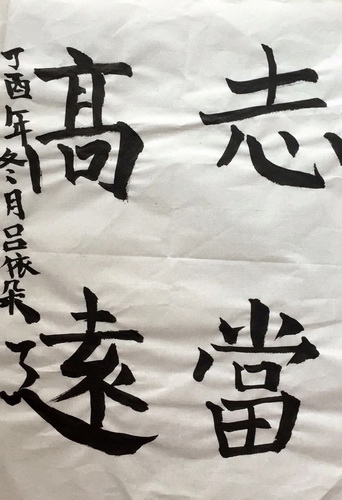 志當
高遠
丁酉年冬月吕依朵